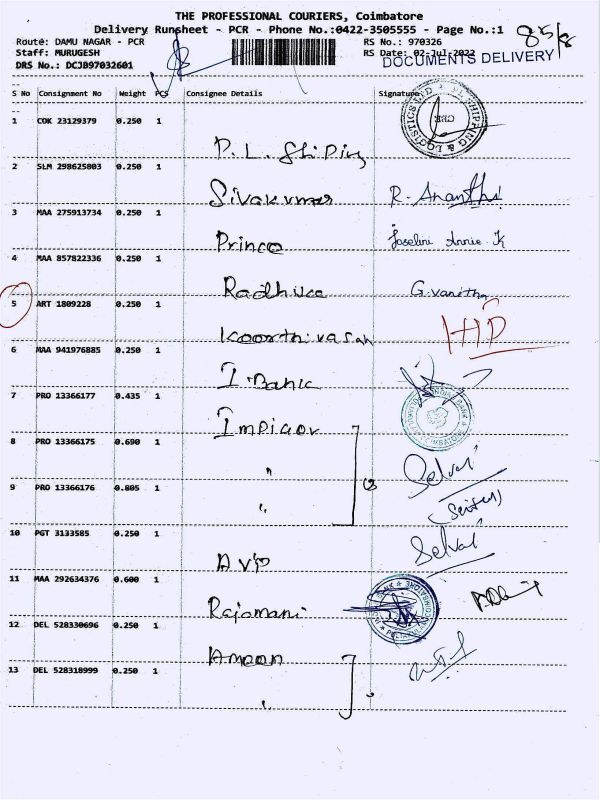 THE PROFESSIONAL COURIERS, Coimbatore
Delivery Runsheet - PCR - Phone No.:0422-3505555 - Page No.:1
Route: DAMU NAGAR - PCR RS No.: 970326
Staff: MURUGESH RS Date: 02-Jul-2022
DOCUMENTS DELIVERY
DRS No.: DCJB97032601
S No Consignment No Weight PCS Consignee Details Signature
1 COK 23129379 0.250 1
P.L. Shiping
2 SLM 298625803 0.250 1
Sivakumar R. Ananthi
3 MAA 275913734 0.250 1
Prince Joseline Annie. K
4 MAA 857822336 0.250 1
Radhika G.vanitha
5 ART 1809228 0.250 1
Koorthivasan
6 MAA 941976885 0.250 1
I Bank
7 PRO 13366177 0.435 1
8 PRO 13366175 0.690 1
" Selvai
9 PRO 13366176 0.805 1
"
10 PGT 3133585 0.250 1
Selvai
11 MAA 292634376 0.600 1
Rajamani
12 DEL 528330696 0.250 1
13 DEL 528318999 0.250 1
"